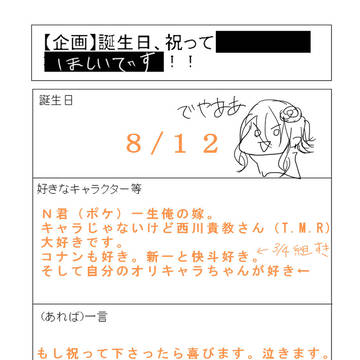 【企画】誕生日、祝って
ほしいですっ！！
誕生日
でやああ
８／１２
好きなキャラクター等
Ｎ君（ポケ）一生俺の嫁。
キャラじゃないけど西川貴教さん（T.M.R）
大好きです。
コナンも好き。新一と快斗好き。 ←3/4組すき
そして自分のオリキャラちゃんが好き←
（あれば）一言
もし祝って下さったら喜びます。泣きます。